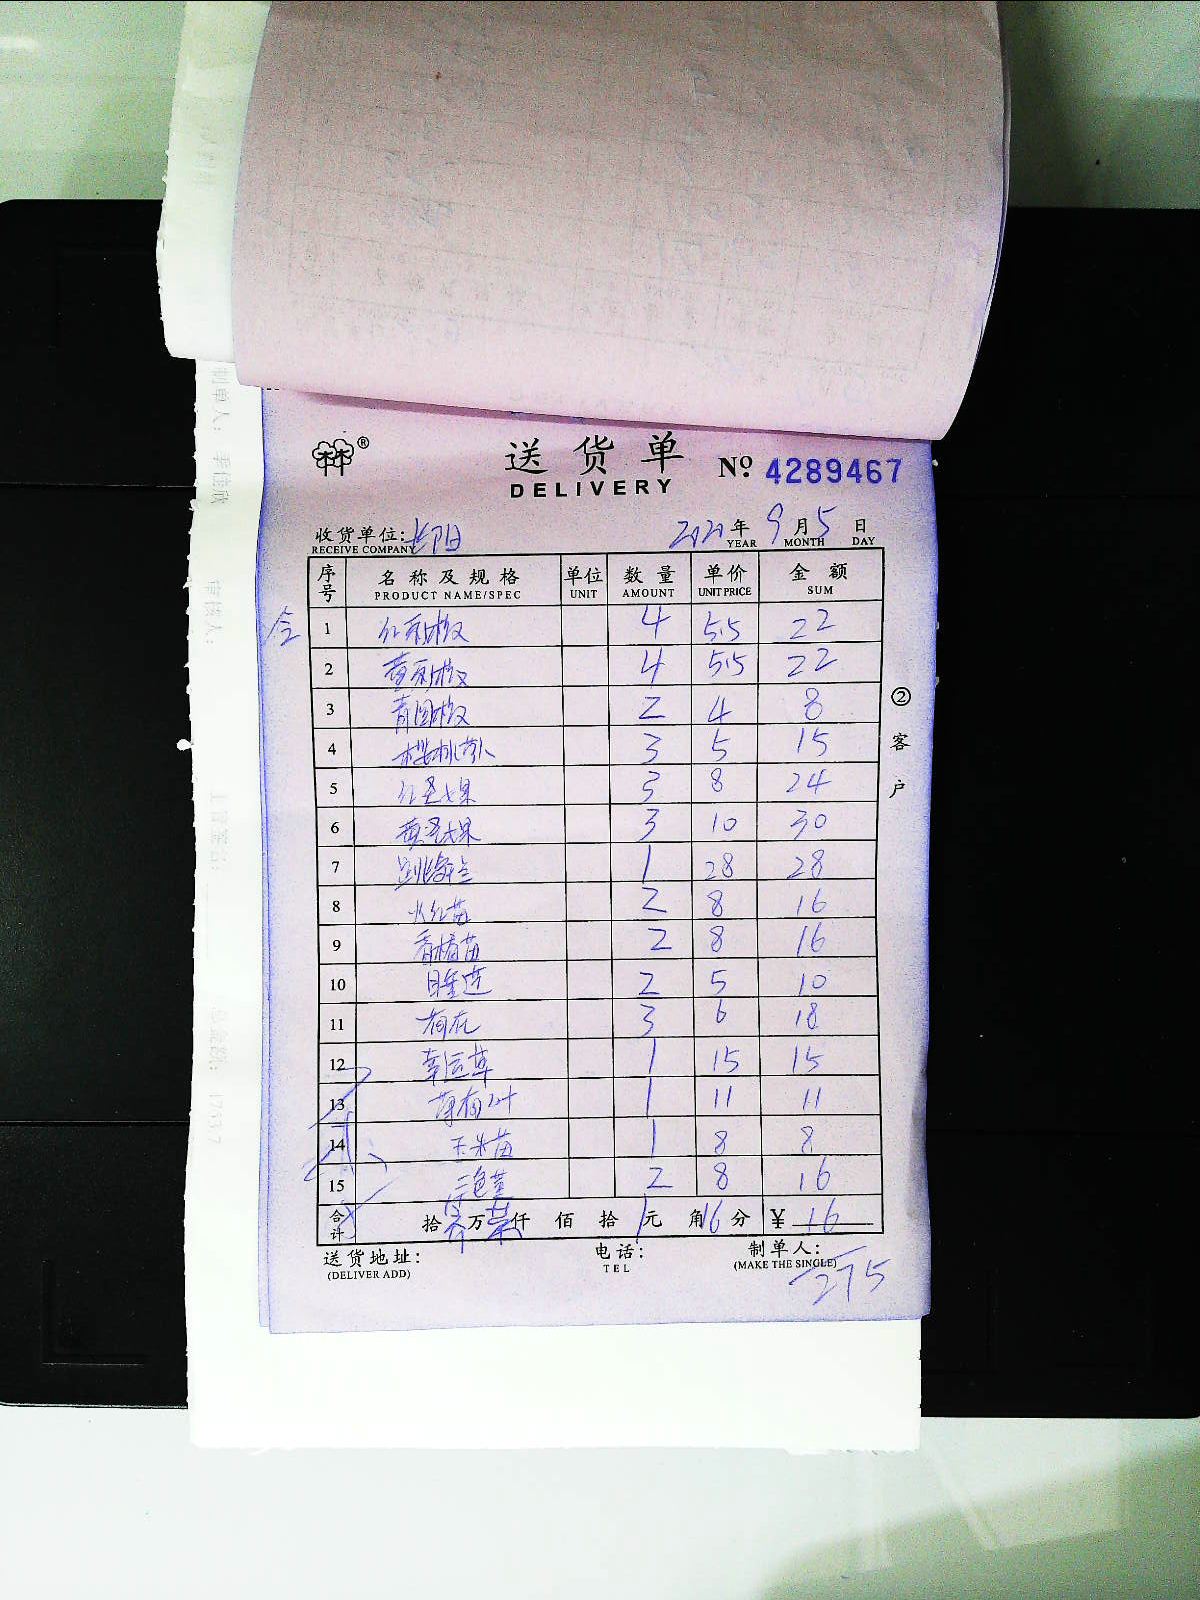 ®
送货单
DELIVERY
No 4289467
收货单位:
RECEIVE COMPANY
2021年9月5日
YEAR MONTH DAY
序号 名称及规格 单位 数量 单价 金额
PRODUCT NAME/SPEC UNIT AMOUNT UNIT PRICE SUM
1 红彩椒 4 5.5 22
2 黄彩椒 4 5.5 22
3 青圆椒 2 4 8
4 樱桃萝卜 3 5 15
5 红圣女果 3 8 24
6 黄圣女果 3 10 30
7 1 28 28
8 火红苗 2 8 16
9 香椿苗 2 8 16
10 睡莲 2 5 10
11 荷花 3 6 18
12 幸运草 1 15 15
13 薄荷叶 1 11 11
14 玉米苗 1 8 8
15 三色堇 2 8 16
合计 拾 万 仟 佰 拾 1元 角 16分 ¥ 16
送货地址:
(DELIVER ADD)
电话:
TEL
制单人:
(MAKE THE SINGLE)
275
②客户
制单人: 李佳欣
审核人: